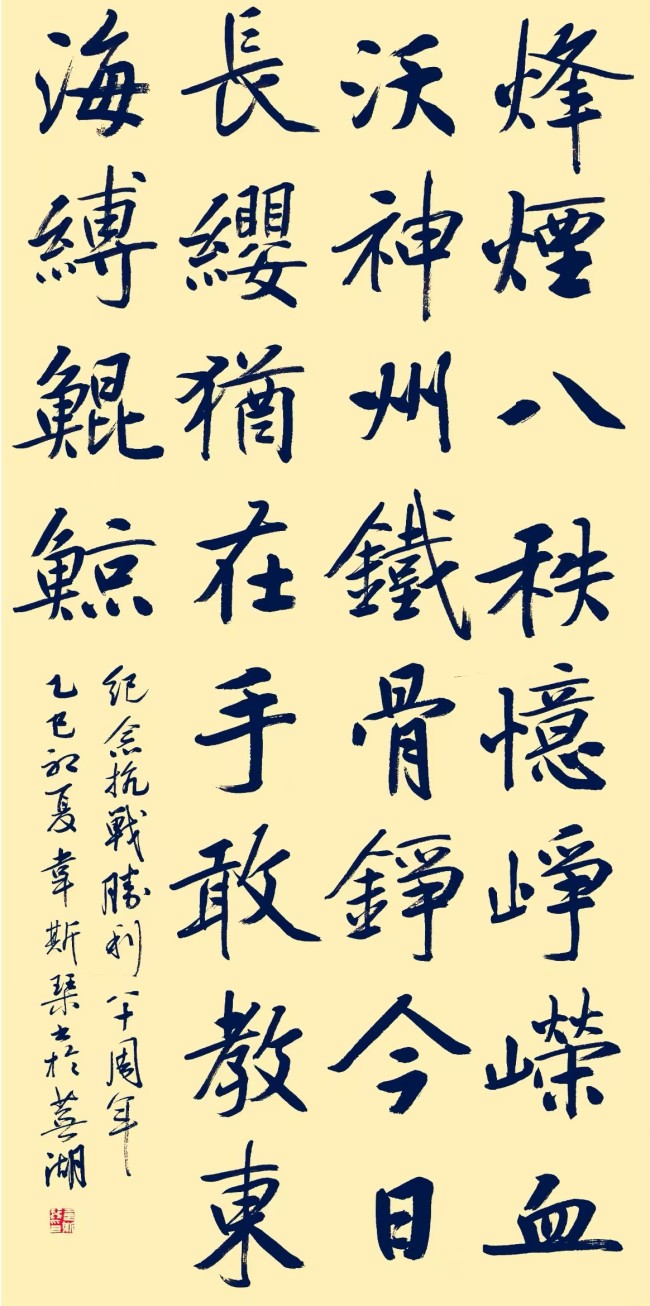 烽煙八秩憶崢嶸血
沃神州鐵骨錚今日
長纓猶在手敢教東
海縛鯤鯨
紀念抗戰勝利八十周年
乙巳初夏韋斯琴書於蕪湖